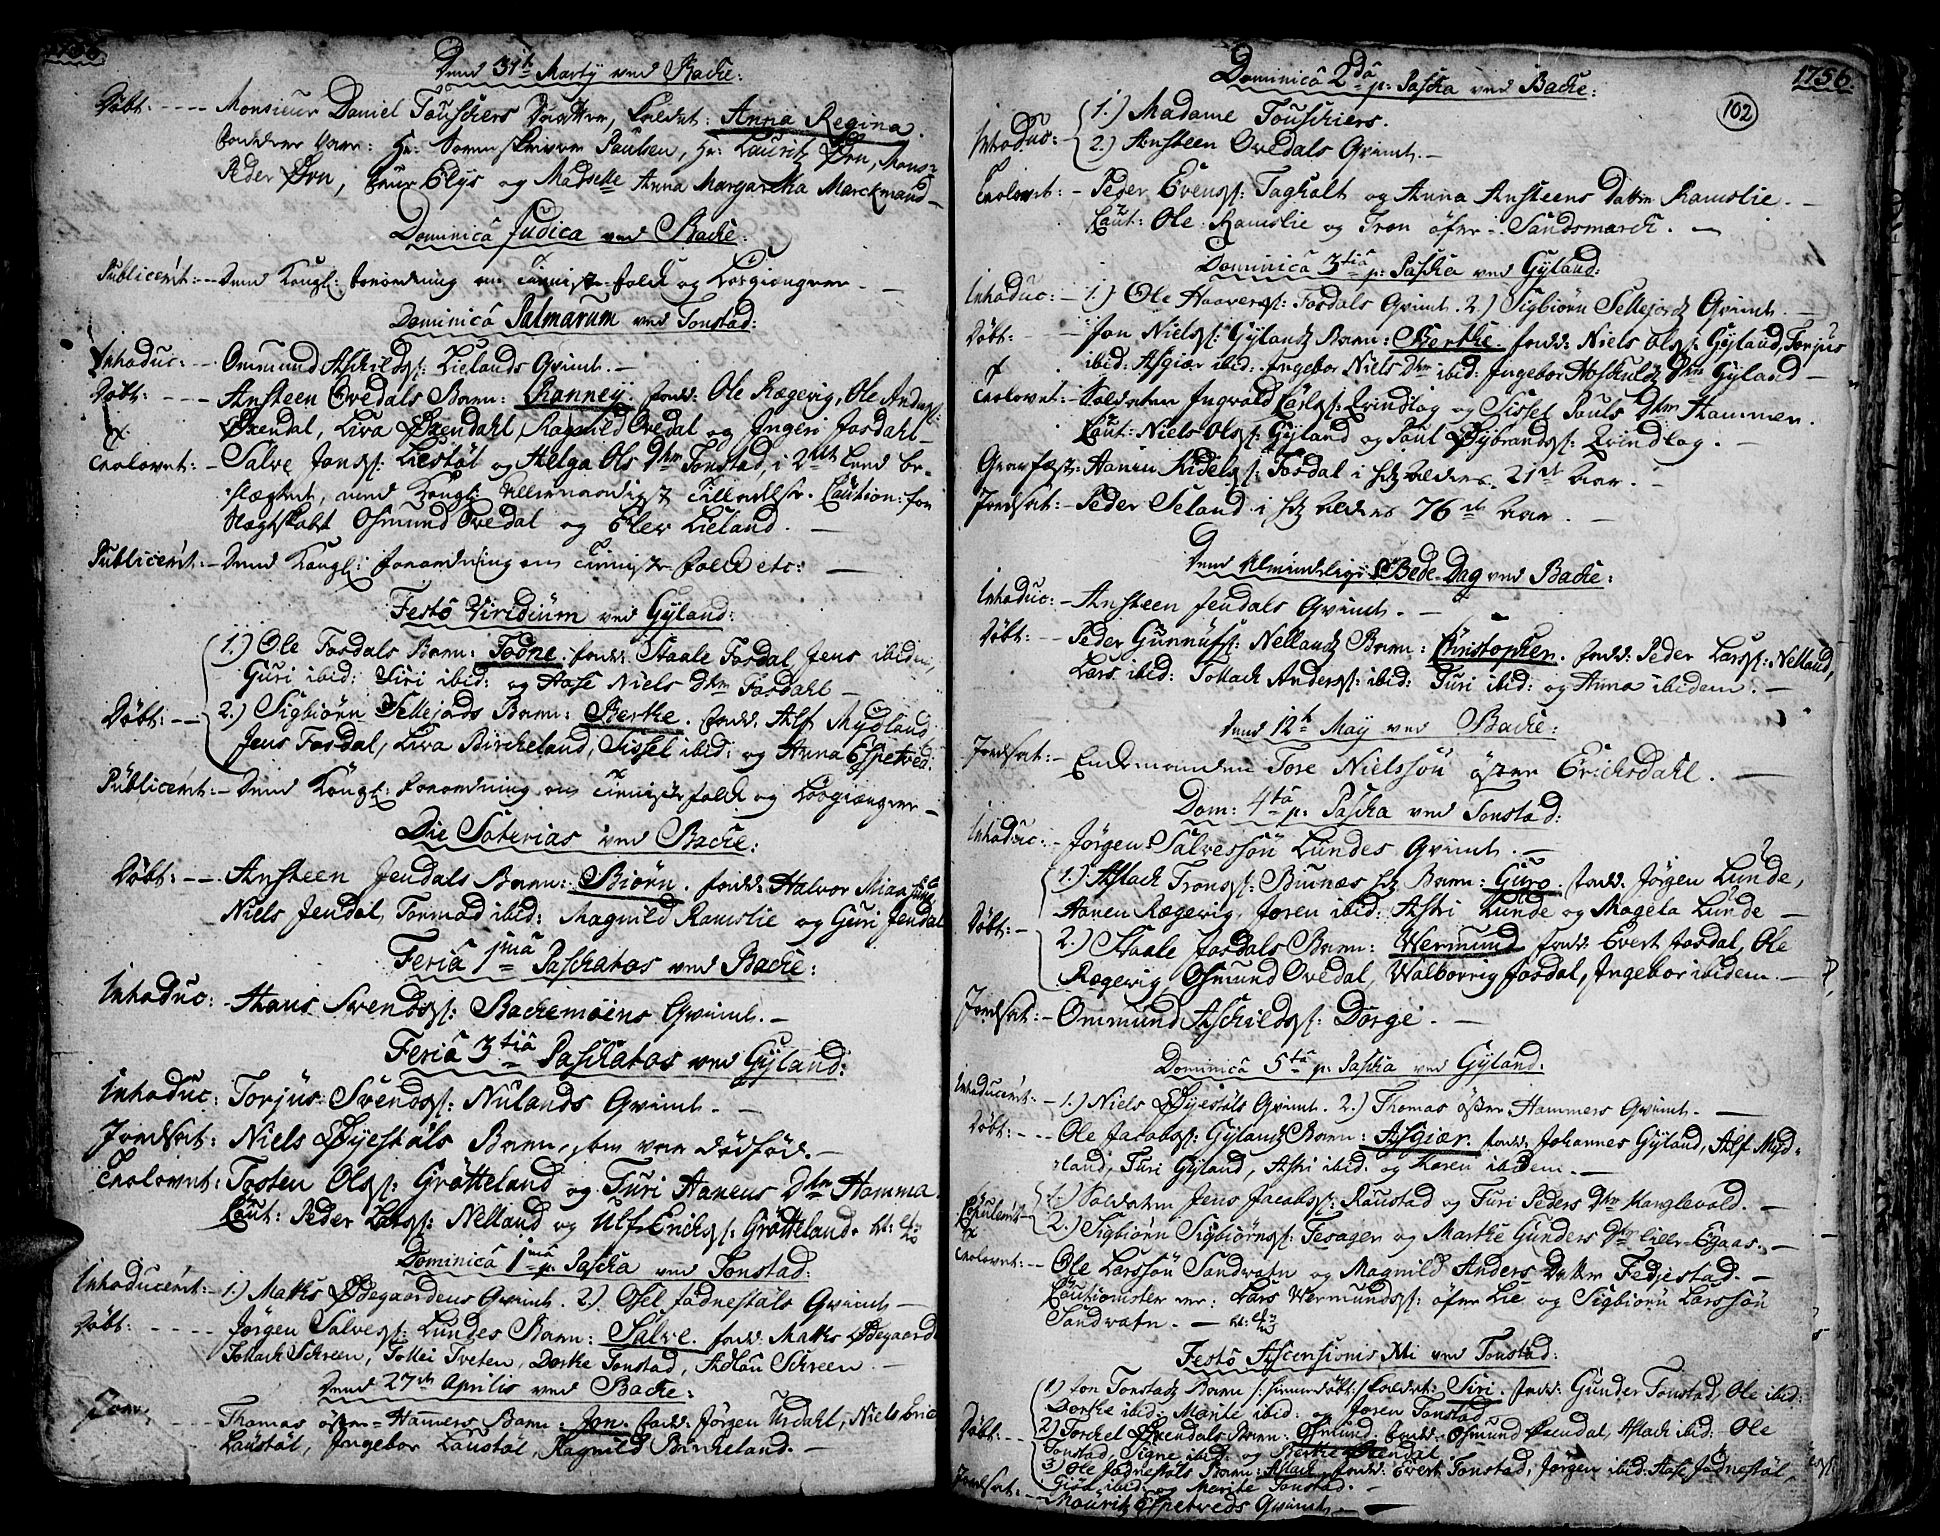 1756
Dend 31th Martij ved Backe:
Döbt: ---- Monsieur Daniel Touschers Daatter, kaldet: Anna Regina.
Faddere vare: Hr: Sorenskriver Paulsen, Hr: Lauritz Ørn, Mons:
Peder Ørn, Elys og Madselle Anna Margaretha Marckmand —
Dominicâ Judica ved Backe:
Publicerit: -- Dend Kongl: Forordning om Tienniste-folck og Løsgiængere —
Dominicâ Palmarum ved Tonstad:
Introduc: -- Ommund Aschilds/: Lielands Qvinde. —
Döbt: ---- Ansteen Ovedals Barn: Ranney. fadd: Ole Rægevig, Ole Anders/:
Øxendal, Liva Øxendahl, Ragnild Ovedal og Ingeri Josdahl —
Trolovet: - Salve Jons/: Liestøl og Helga Ols Dtr Tonstad, i 2det Leed be-
slægtet, med Kongl: Allernaadigst Tilladelse. Caution: for
Slegtskabt Osmund Ovedal og Elev Lieland. —
Publicerit: - Dend Kongl: forordning om Tieniste folck etc: —
Festô Viridium ved Gyland:
1.) Ole Fosdals Barn: Todne. fadd: Staale Fosdal, Jens ibidem,
Guri ibid: Siri ibid: og Aase Niels Dtr Fosdahl —
Döbt: -- 2.) Sigbiørn Sellejords Barn: Berthe. fadd: Alf Mydland,
Jens Fosdal, Liva Bircheland, Sissel ibid: og Anna Espetved.
Publicerit: - Dend Kongl: Forordning om Tieniste folck og Løsgiængere —
Die Soterias ved Backe:
Döbt: -- Ansteen Jendals Barn: Biørn. fadd: Halvor
Niels Jendal, Tormod ibid: Magnild Ramslie og Guri Jendal
Feriâ 1mâ Paschatos ved Backe:
Introduc: - Hans Svends/: Backemoens Qvinde. —
Feriâ 3tiâ Paschatos ved Gyland:
Introduc: Torjus Svends/: Nulands Qvinde. —
Jordsat: Niels Øyestøls Barn, som var dødfød. —
Trolovet: Tosten Ols/: Grøtteland og Turi Hanens Dtr Hamma
Caut: Peder Lars/: Nelland og Ulf Erichs/: Grøtteland.
Dominicâ 1mâ p: Pascha ved Tonstad:
Introducerit: - 1.) Mathis Ødegaardens Qvinde. 2.) Osel Jødnestøls Qvinde —
Döbt: ---- Jørgen Salves/: Lundes Barn: Salve. fadd: Mathis Ødegaard
Tollach Schreen, Tollei Tveten, Dorthe Tonstad, Adlau Schreen. —
Dend 27de Aprilis ved Backe:
---- Thomas østre-Hamers Barn: Jon. fadd: Jørgen Urdahl, Niels Eric
Laustøl, Ingebor Laustøl, Ragnild Bircheland. —
1756.
102
Dominicâ 2dâ p: Pascha ved Backe:
Introduc: 1.) Madame Touschiers.
2.) Ansteen Ovedals Qvinde. —
Trolovet: - Peder Evens/: Taghalt og Anna Ansteens Datter Ramslie. —
Caut: Ole Ramslie og Tron øfre Sandsmarck. —
Dominicâ 3tiâ p: Pascha ved Gyland:
Introduc: - 1.) Ole Haavers/: Fosdals Qvinde. 2.) Sigbiørn Sellejords Qvinde. —
Döbt: -- Jon Niels/: Gylands Barn: Berthe. fadd: Niels Ols/: Gyland, Torjus
ibid: Asgiær ibid: Ingebor Niels Dtr ibid: Ingebor Dtr Gyland —
Trolovet: - Soldaten Ingvald Carls/: Qvindlog og Sissel Pouls Dtr Hammer.
Caut: Niels Ols/: Gyland og Poul Sybrands/: Qvindlog. —
Graufæst: - Hanen Kidels/: Fosdal i sitz alders. 21de Aar. —
Jordsat: - Peder Seland i sitz alders 76de Aar. —
Dend Almindelige Bede-Dag ved Backe:
Introduc: - Ansteen Jendals Qvinde. —
Döbt: -- Peder Gunnufs/: Nellands Barn: Christopher. fadd: Peder Lars/: Nelland,
Lars ibid: Tollach Anders/: ibid: Turi ibid: og Anna ibidem. —
Dend 12te May ved Backe:
Jordsat: - Enckemanden Tore Nielssøn østre Erichsdahl. —
Dom: 4tâ p: Pascha ved Tonstad:
Introduc: - Jørgen Salvessøn Lundes Qvinde. —
1.) Aslach Trons/: Buenæs sitz Barn: Guro. fadd: Jørgen Lunde,
Döbt: - Hanen Rægevig, Joren ibid: Astri Lunde og Mageta Lunde —
2.) Staale Josdals Barn: Wermund. fadd: Evert Josdal, Ole
Rægevig, Osmund Ovedal, Walborrig Josdal, Ingebor ibidem. —
Jordsat: - Ommund Aschilds/: Dorge. —
Dominicâ 5tâ p: Pascha ved Gyland:
Introducerit: - 1.) Niels Øyestøls Qvinde. 2.) Thomas østre Hammers Qvinde. —
Döbt: --- Ole Jacobs/: Gylands Barn: Asgiær. fadd: Johannes Gyland, Alf Myd-
land, Turi Gyland, Astri ibid: og Karen ibidem. —
Copulerit 1.) Soldaten Jens Jacobs/: Raustad og Turi Peders Dtr Kanglevold. —
2.) Sigbiørn Sigbiørns/: Tesager og Marthe Gunders Dtr lille-Egaas. —
Trolovet: -- Ole Larssøn Sandvatn og Magnild Anders Datter Fedjestad. —
Cautionister er: Lars Wermunds/: øfre Lie og Sigbiørn Larssøn
Sandvatn. —
Festô Ascensionis Xti ved Tonstad:
1) Jon Tonstads Barn /: hiemedøbt:/ kaldet: Siri. fadd: Gunder Tonstad, Ole ibid:
Dorthe ibid: Marite ibid: og Joren Tonstad
Döbt: -- 2) Torchel Øxendals Barn: Osmund. fadd: Osmund Øxendal, Aslach ibid: Ole
Tonstad, Signe ibid: og Berthe Øxendal
3) Ole Jødnestøls Barn: Aslach. fadd: Evert Tonstad, Jørgen ibid: Aase Jødnestøl,
Giøa ibid: og Marite Tonstad. —
Jordsat: -- Mauritz Espetveds Qvinde —